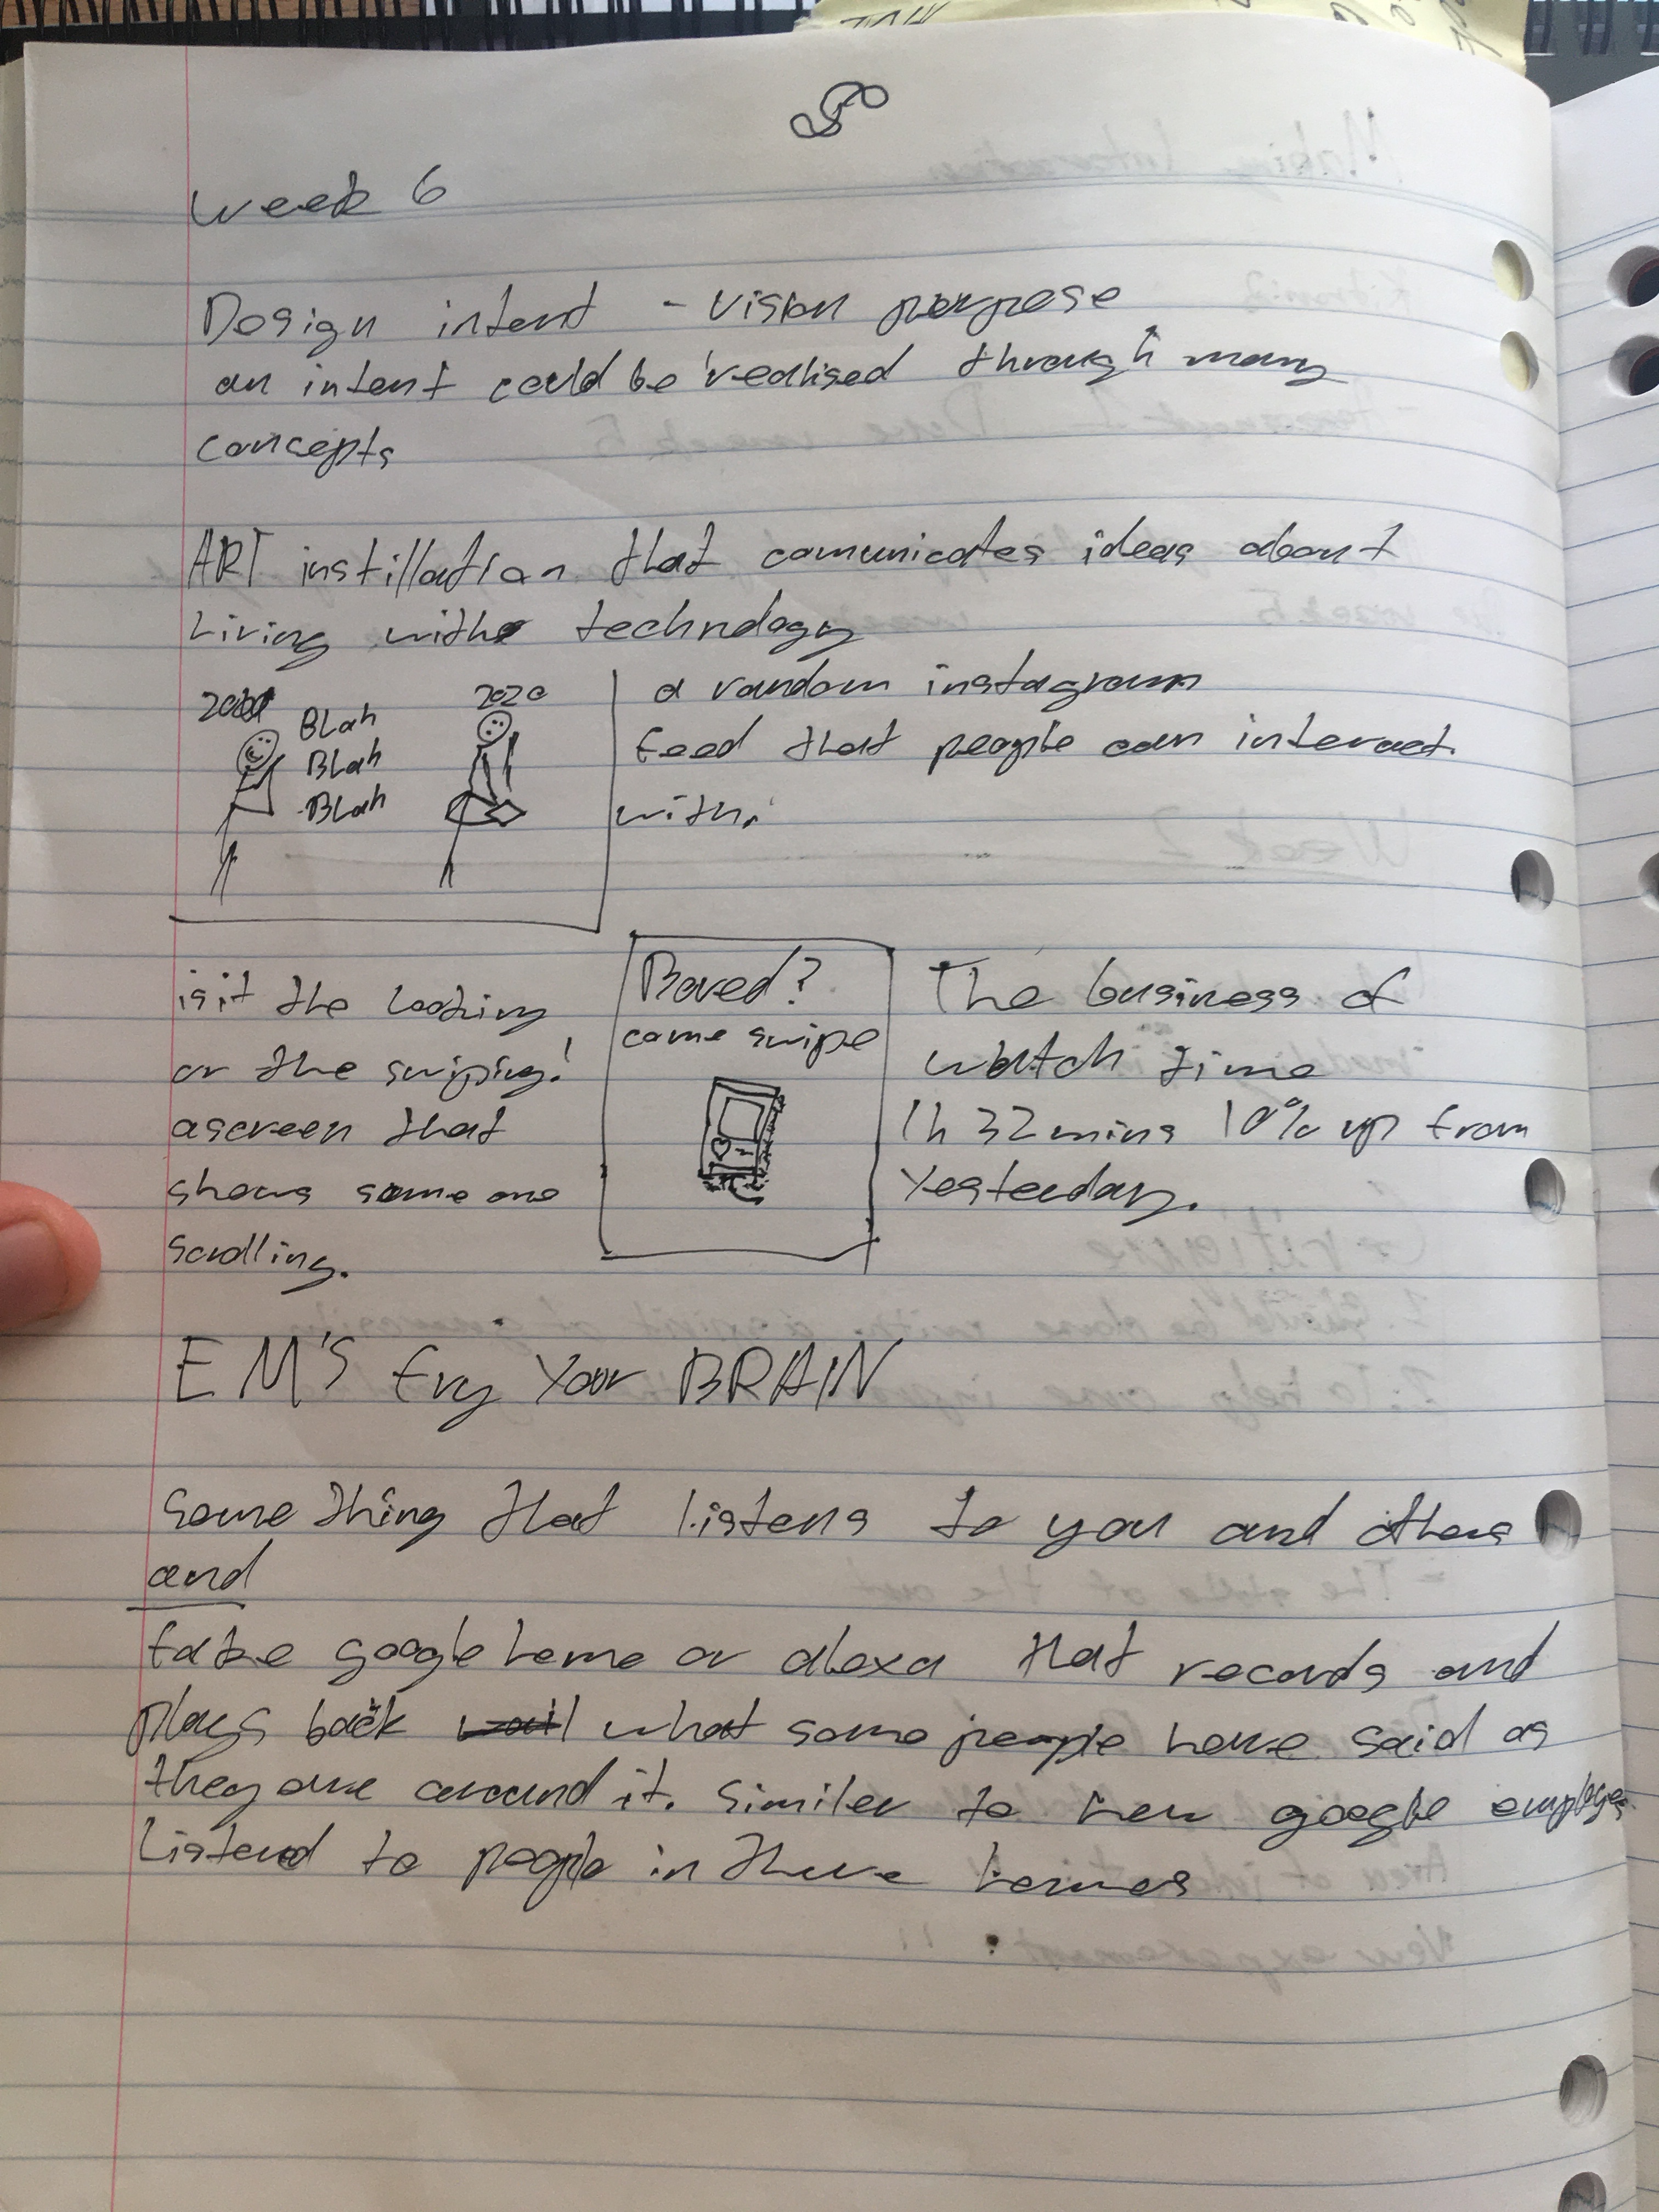 week 6
Design intent - vision perpose
an intent could be realised through many
concepts
ART instillation that comunicates ideas about
Living with technology
2020
BLah
BLah
BLah
a random instagram
feed that people can interact
with.
is it the looking
or the swiping!
a screen that
shows some one
scrolling.
Bored?
come swipe
The business of
watch time
1h 32 mins 10% up from
Yesterday.
EM'S fry Your BRAIN
some thing that listens to you and others
and
fake google home or alexa that records and
plays back what some people have said as
they are around it. similer to how google employes
Listend to people in there homes